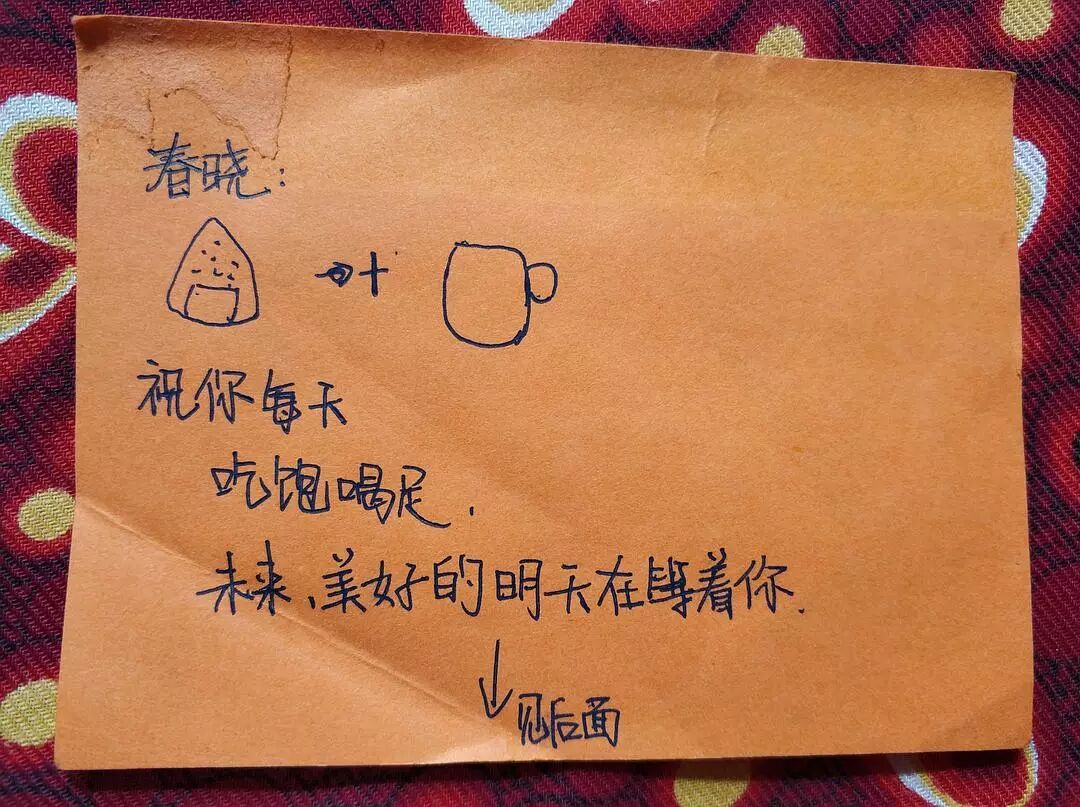 春晓:
+
祝你每天
吃饱喝足.
未来、美好的明天在等着你.
见后面